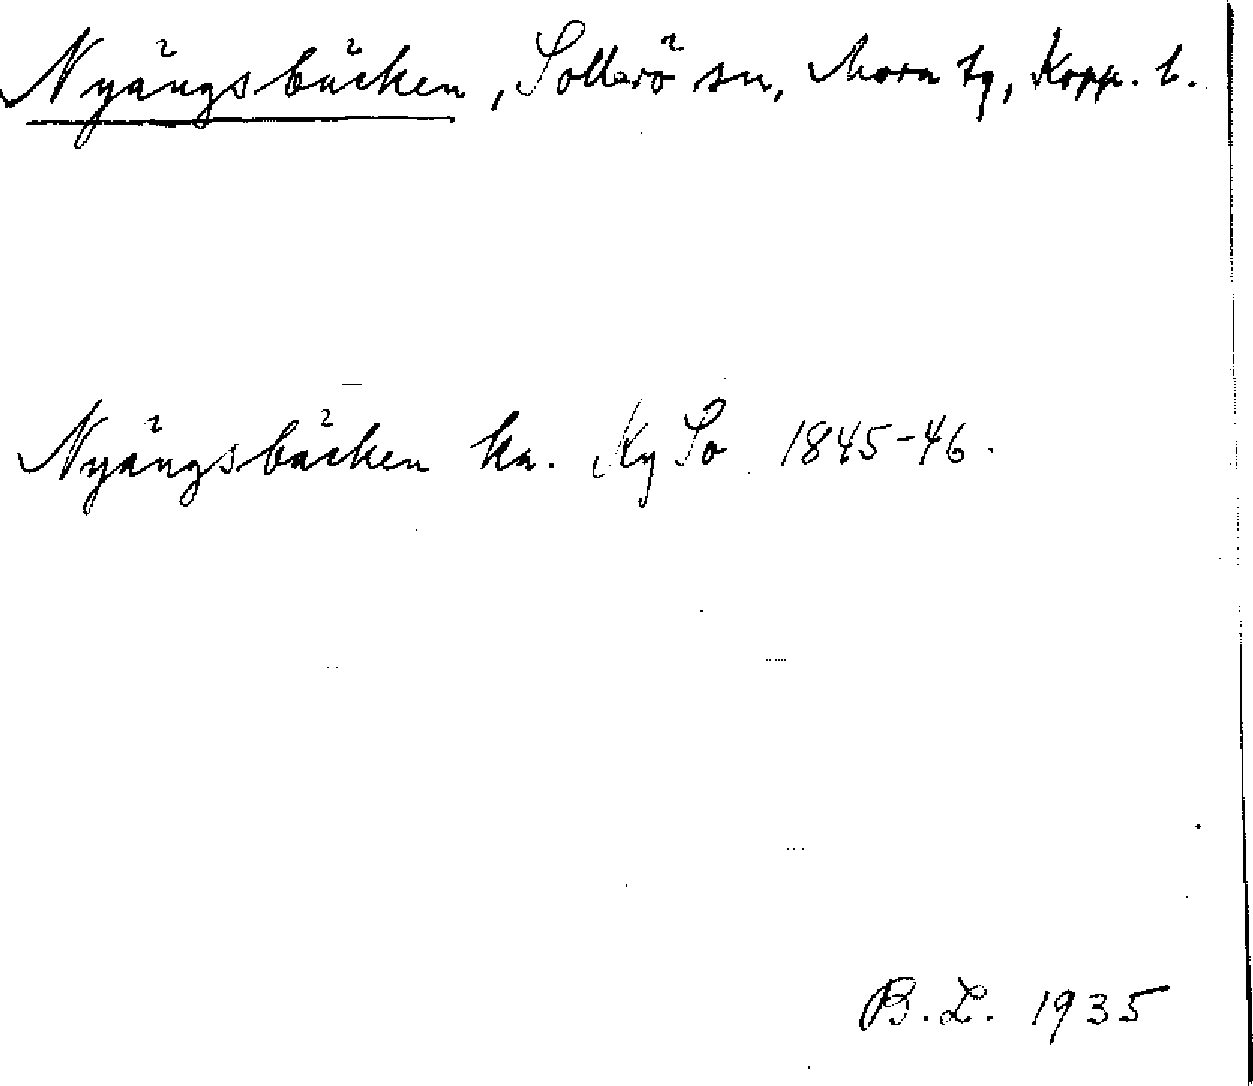 Nyängsbäcken, Sollerö sn, Mora tg, Kopp. l.
Nyängsbäcken ka. Ky So 1845-46.
B.L. 1935